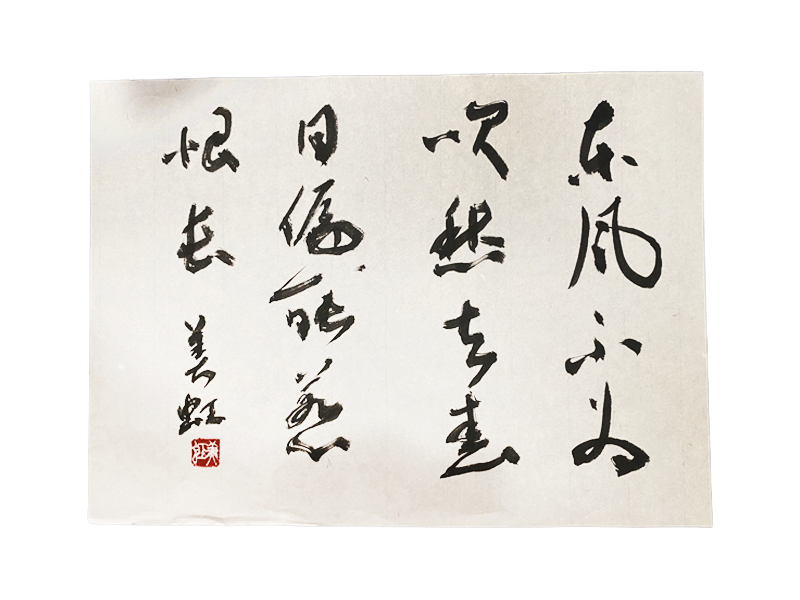 东风不为
吹愁去春
日偏能惹
恨长
美虹